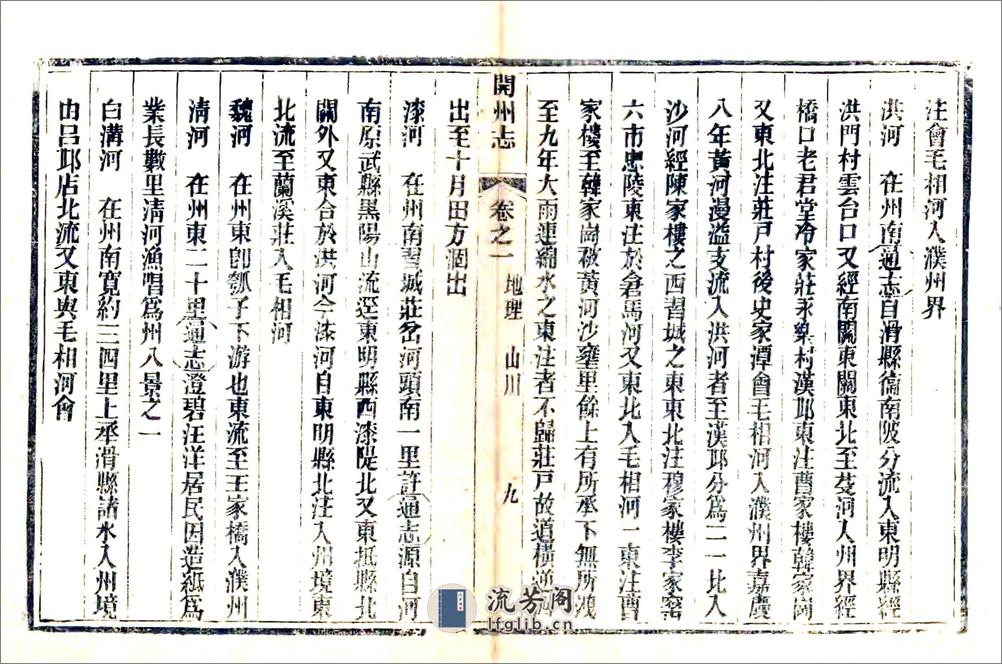 注會毛相河入濮州界
洪河 在州南通志自滑縣衞南陂分流入東明縣經
洪門村雲台口又經南關東關東北至芟河入州界經
橋口老君堂冷家莊永樂村漢邱東注曹家樓韓家崗
又東北注莊戸村後史家潭會毛相河入濮州界嘉慶
八年黃河漫溢支流入洪河者至漢邱分為二一北入
沙河經陳家樓之西習城之東東北注穆家樓李家窰
六市忠陵東注於倉馬河又東北入毛相河一東注曹
家樓至韓家崗被黃河沙壅里餘上有所承下無所洩
至九年大雨連綿水之東注者不歸莊戸故道橫通
開州志 卷之一 地理 山川 九
出至十月田方涸出
漆河 在州南習城莊岔河頭南一里許通志源自河
南原武縣黒陽山流逕東明縣西漆隄北又東抵縣北
關外又東合於洪河今漆河自東明縣北注入州境東
北流至蘭溪莊入毛相河
魏河 在州東卽瓠子下游也東流至王家橋入濮州
淸河 在州東二十里通志澄碧汪洋居民因造紙為
業長數里淸河漁唱爲州八景之一
白溝河 在州南寬約三四里上承滑縣諸水入州境
由呂邱店北流又東與毛相河會
流芳阁
lfglib.cn